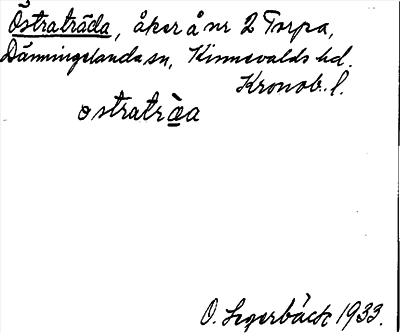 Östraträda, åker å nr 2 Torpa,
Dänningelanda sn, Kinnevalds hd.
Kronob. l.
ostratræ̀a
O. Segerbäck 1933.